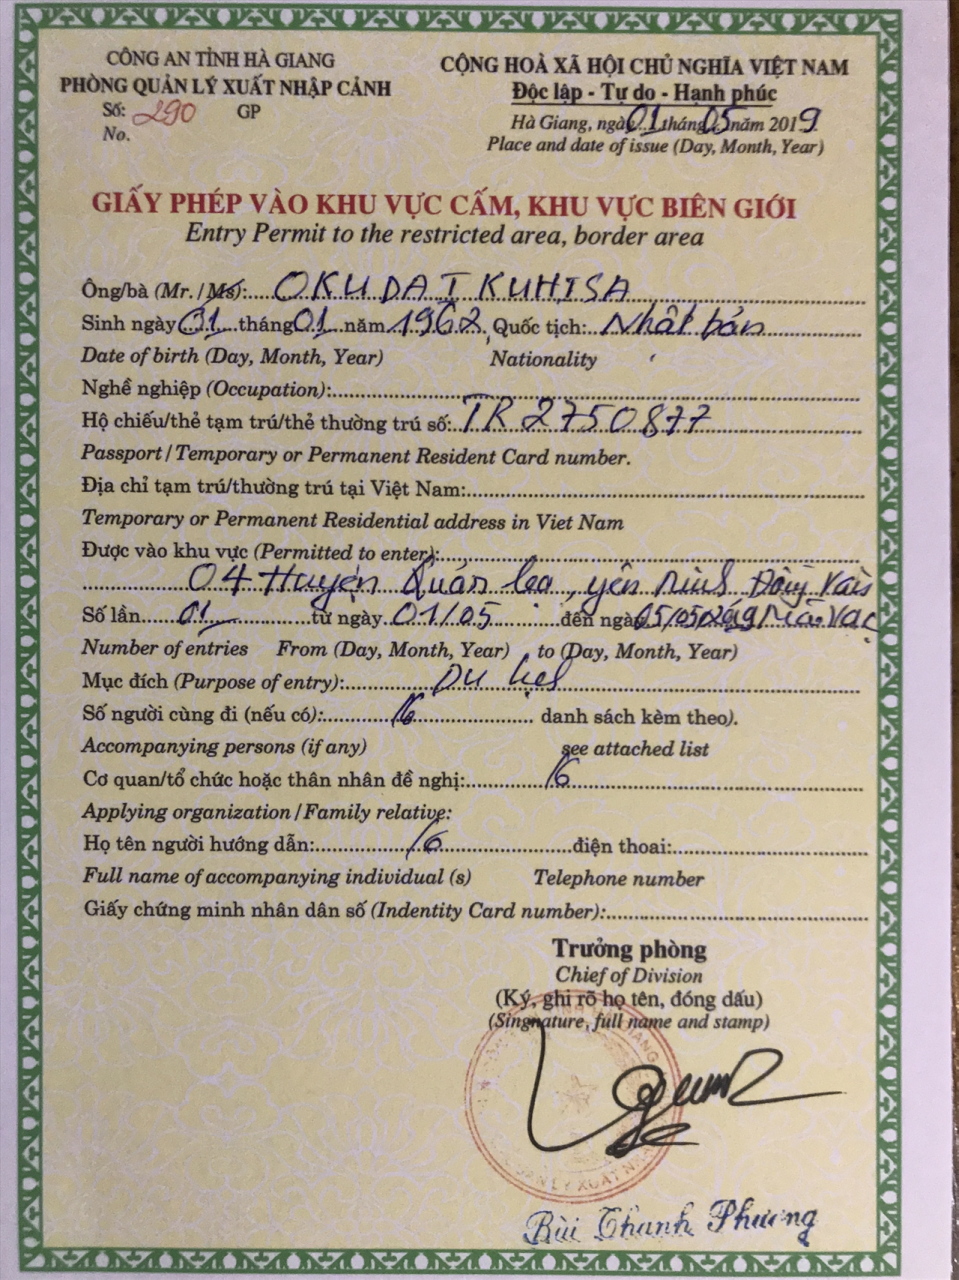 CÔNG AN TỈNH HÀ GIANG
PHÒNG QUẢN LÝ XUẤT NHẬP CẢNH
Số: 290 GP
No.
CỘNG HOÀ XÃ HỘI CHỦ NGHĨA VIỆT NAM
Độc lập - Tự do - Hạnh phúc
Hà Giang, ngày 01 tháng 05 năm 2019
Place and date of issue (Day, Month, Year)
GIẤY PHÉP VÀO KHU VỰC CẤM, KHU VỰC BIÊN GIỚI
Entry Permit to the restricted area, border area
Ông/bà (Mr. / Ms): OKUDA IKUHISA
Sinh ngày 01 tháng 01 năm 1962, Quốc tịch: Nhật bản
Date of birth (Day, Month, Year) Nationality
Nghề nghiệp (Occupation):
Hộ chiếu/thẻ tạm trú/thẻ thường trú số: TR2750877
Passport / Temporary or Permanent Resident Card number.
Địa chỉ tạm trú/thường trú tại Việt Nam:
Temporary or Permanent Residential address in Viet Nam
Được vào khu vực (Permitted to enter):
04 Huyện Quản bạ, yên Minh Đồng Văn
Số lần 01 từ ngày 01/05 đến ngày 05/05/2019 Mèo Vạc
Number of entries From (Day, Month, Year) to (Day, Month, Year)
Mục đích (Purpose of entry): Du lịch
Số người cùng đi (nếu có): danh sách kèm theo).
Accompanying persons (if any) see attached list
Cơ quan/tổ chức hoặc thân nhân đề nghị:
Applying organization / Family relative:
Họ tên người hướng dẫn: điện thoai:
Full name of accompanying individual (s) Telephone number
Giấy chứng minh nhân dân số (Indentity Card number):
Trưởng phòng
Chief of Division
(Ký, ghi rõ họ tên, đóng dấu)
(Singnature, full name and stamp)
Bùi Thanh Phương